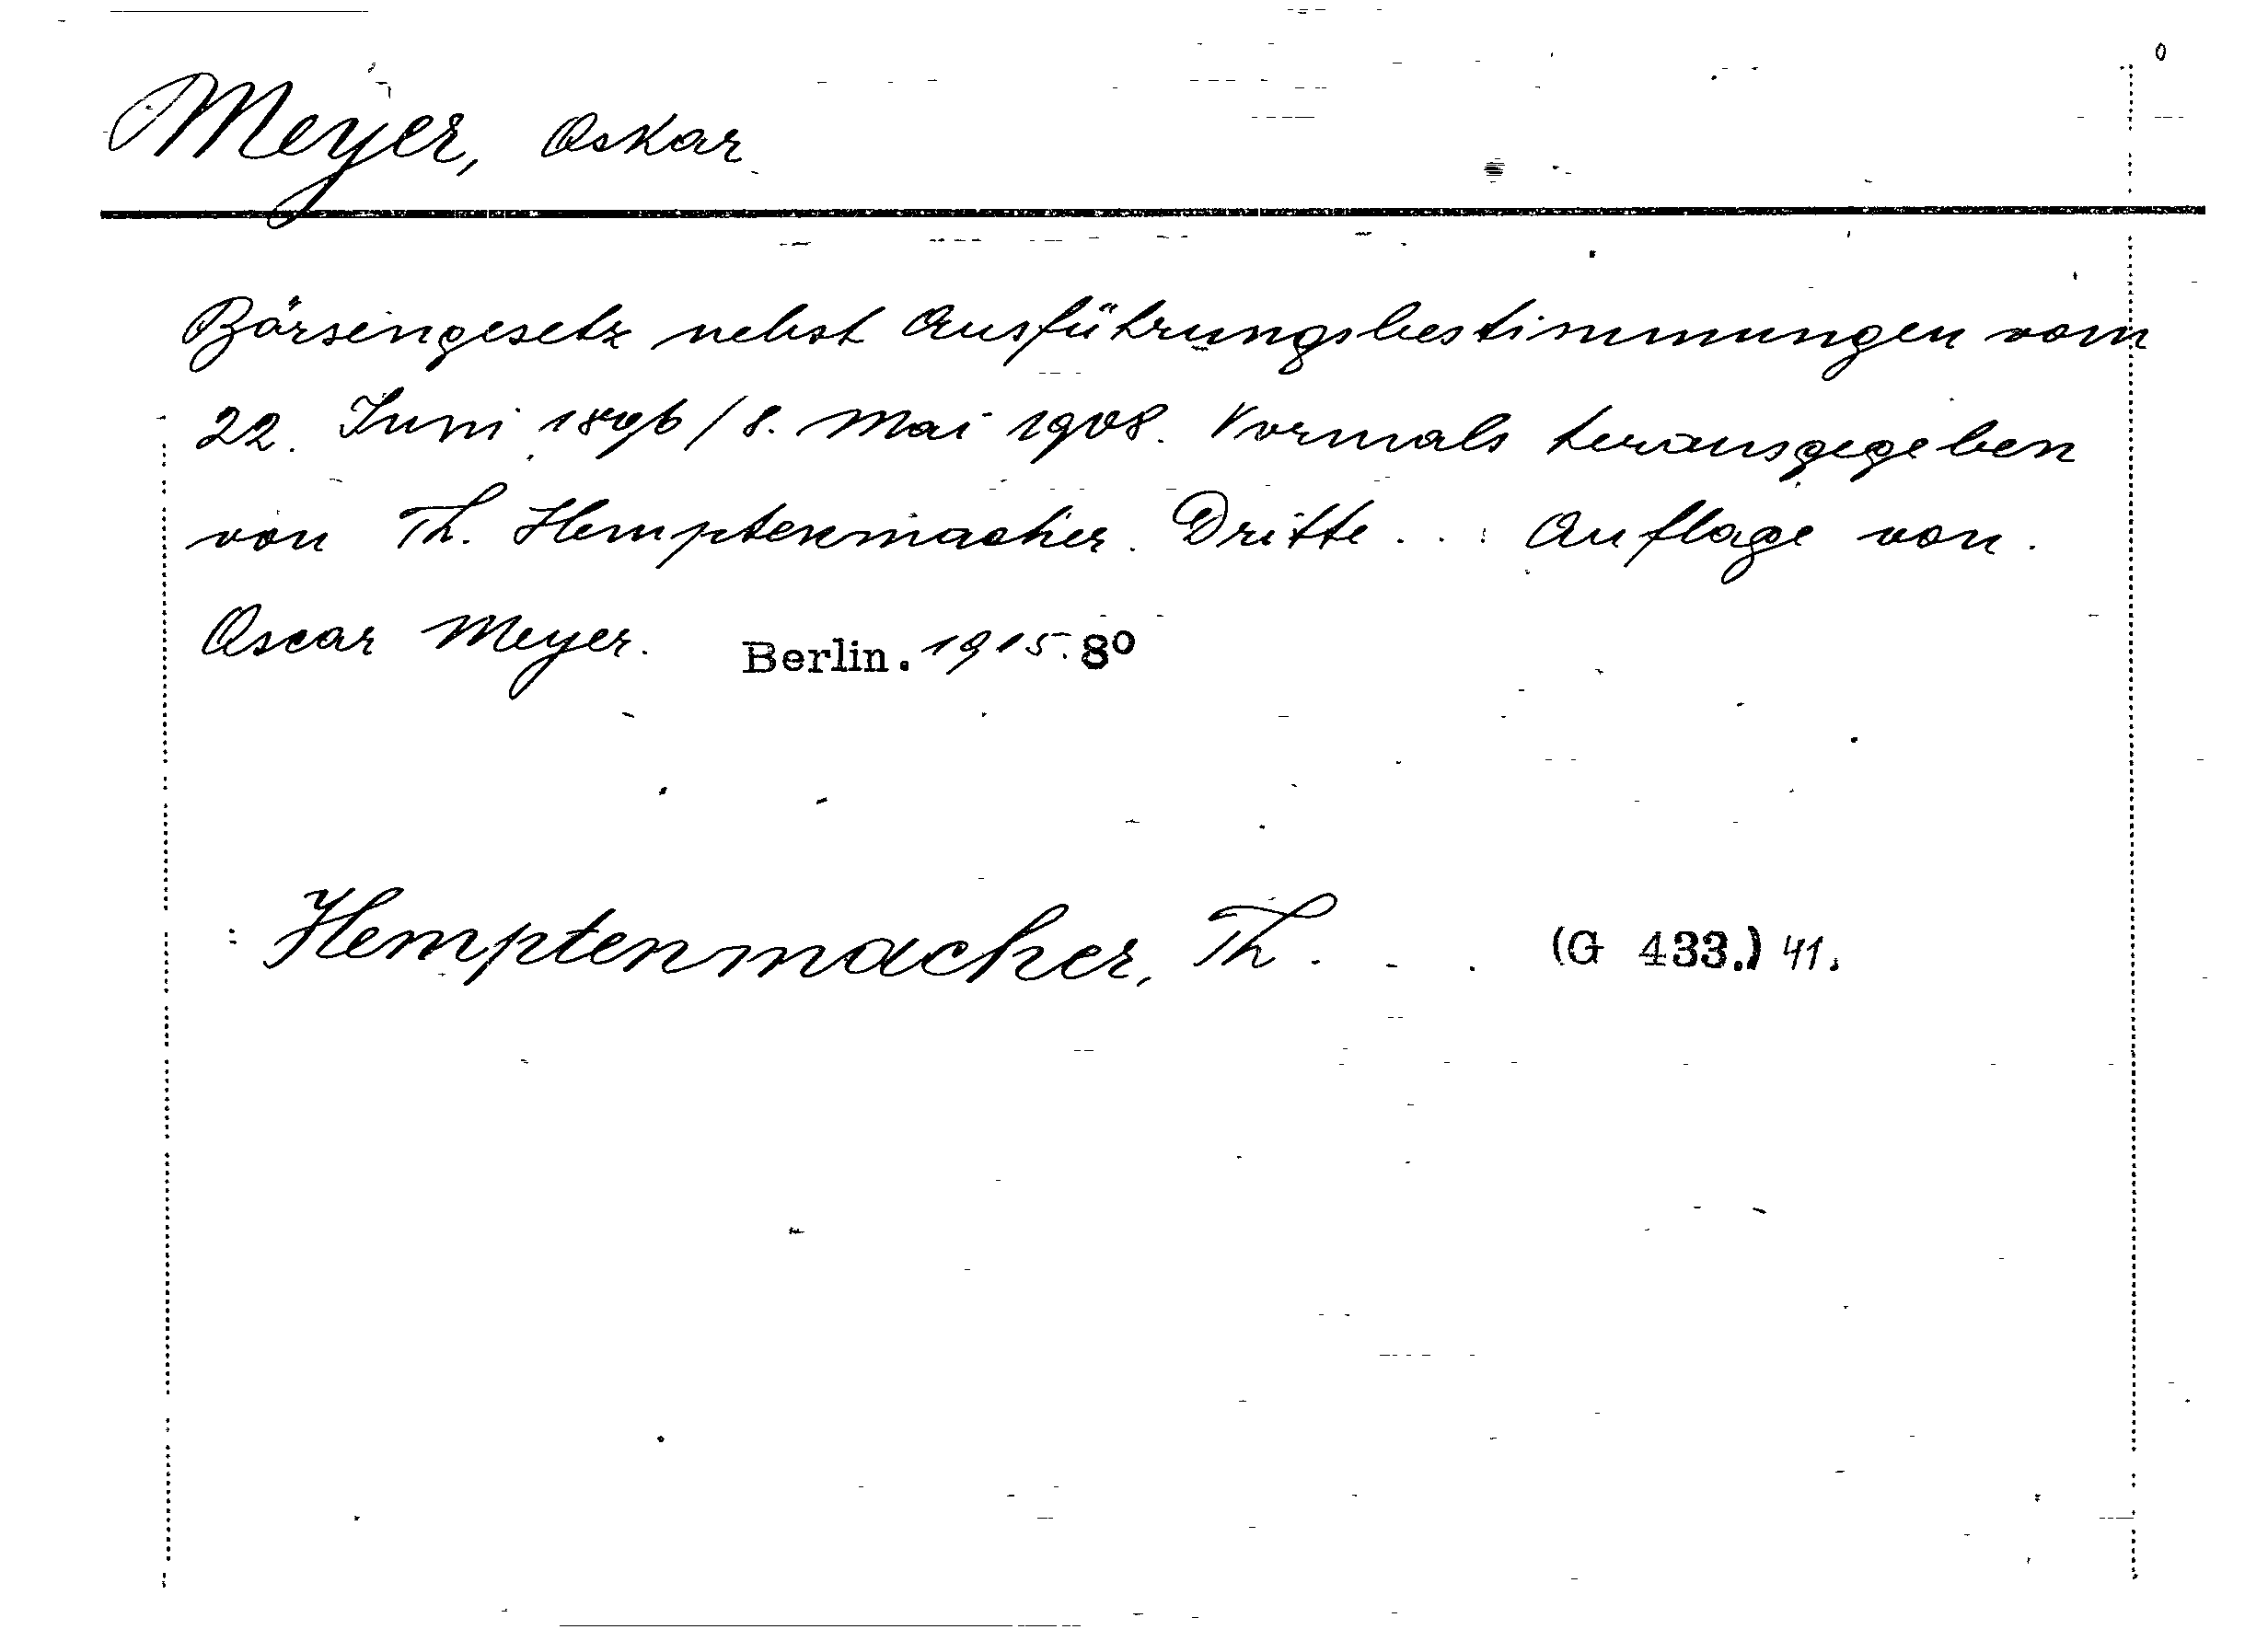 Meyer, Oskar
Börsengesetz nebst Ausführungsbestimmungen vom
22. Juni 1896/8. Mai 1908. Vormals herausgegeben
von Th. Hemptenmacher. Dritte ... Auflage von
Oscar Meyer. Berlin. 1915. 8º
Hemptenmacher, Th. (G 433.) 41.